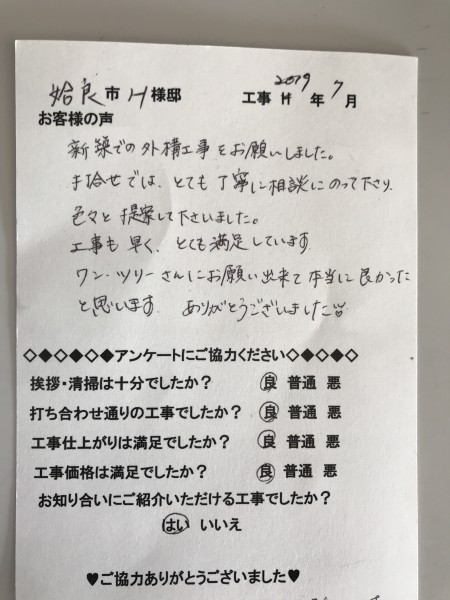 姶良市 H 様邸 工事 H 2019 年 7 月
お客様の声
新築での外構工事をお願いしました。
打合せでは、とても丁寧に相談にのって下さり、
色々と提案して下さいました。
工事も早く、とても満足しています。
ワン・ツリーさんにお願い出来て本当に良かった
と思います。 ありがとうございました
◇◆◇◆◇◆アンケートにご協力ください◇◆◇◆◇
挨拶・清掃は十分でしたか? 良 普通 悪
打ち合わせ通りの工事でしたか? 良 普通 悪
工事仕上がりは満足でしたか? 良 普通 悪
工事価格は満足でしたか? 良 普通 悪
お知り合いにご紹介いただける工事でしたか?
はい いいえ
♥ご協力ありがとうございました♥